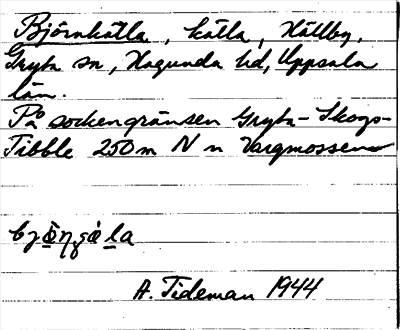 Björnkälla, källa, Hällby,
Gryta sn, Hagunda hd, Uppsala
län.
På sockengränsen Gryta-Skogs-
Tibble 250 m N n Vargmossen
A. Tideman 1944